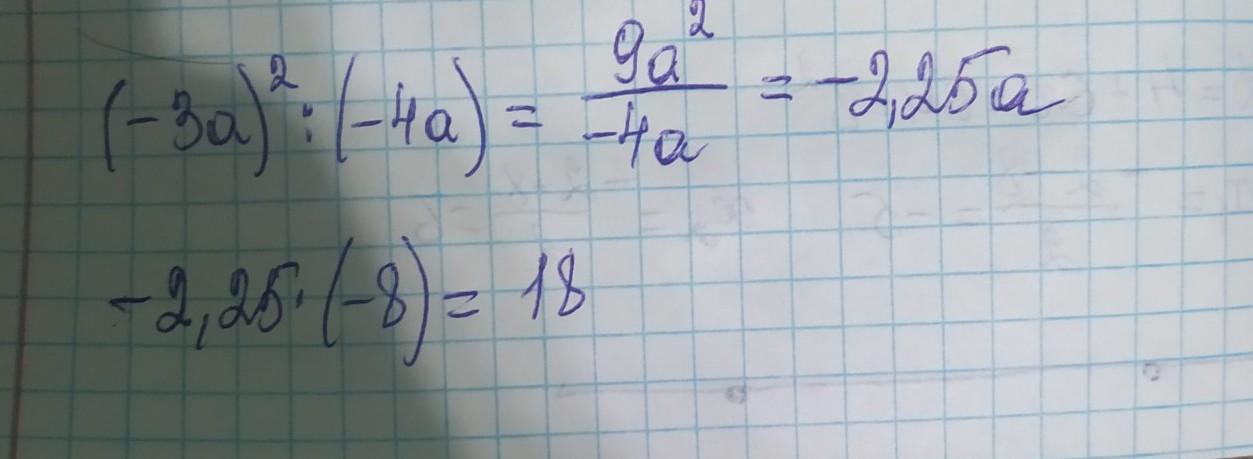 (-3a)² : (-4a) = 9a²/-4a = -2,25a
-2,25 · (-8) = 18